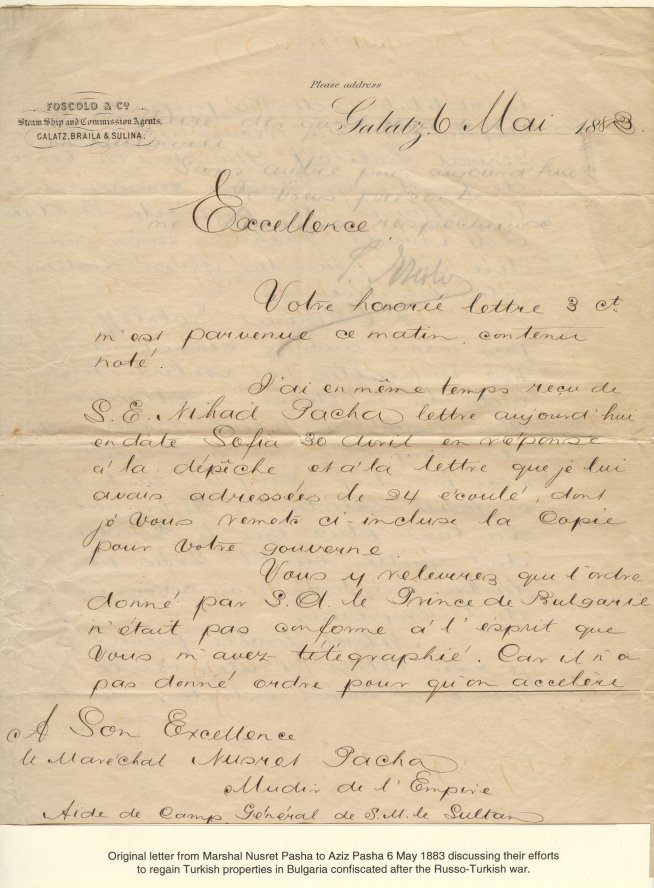 Please address
FOSCOLO & Cº
Steam Ship and Commission Agents,
GALATZ, BRAILA & SULINA.
Galatz, 6 Mai 1883.
Excellence
Votre honorée lettre 3 ct.
m'est parvenue ce matin, contenu
noté.
J'ai en même temps reçu de
S. E. Nihad Pacha lettre aujourd'hui
en date Sofia 30 Avril en réponse
à la dépêche et à la lettre que je lui
avais adressées le 24 écoulé, dont
je vous remets ci-incluse la Copie
pour votre gouverne
Vous y releverez que l'ordre
donné par S. A. le Prince de Bulgarie
n'était pas conforme à l'esprit que
vous m'avez télégraphié. Car il n'a
pas donné ordre pour qu'on accelère
A Son Excellence
le Maréchal Nusret Pacha
Mudir de l'Empire
Aide de Camp Général de S. M. le Sultan
Original letter from Marshal Nusret Pasha to Aziz Pasha 6 May 1883 discussing their efforts
to regain Turkish properties in Bulgaria confiscated after the Russo-Turkish war.